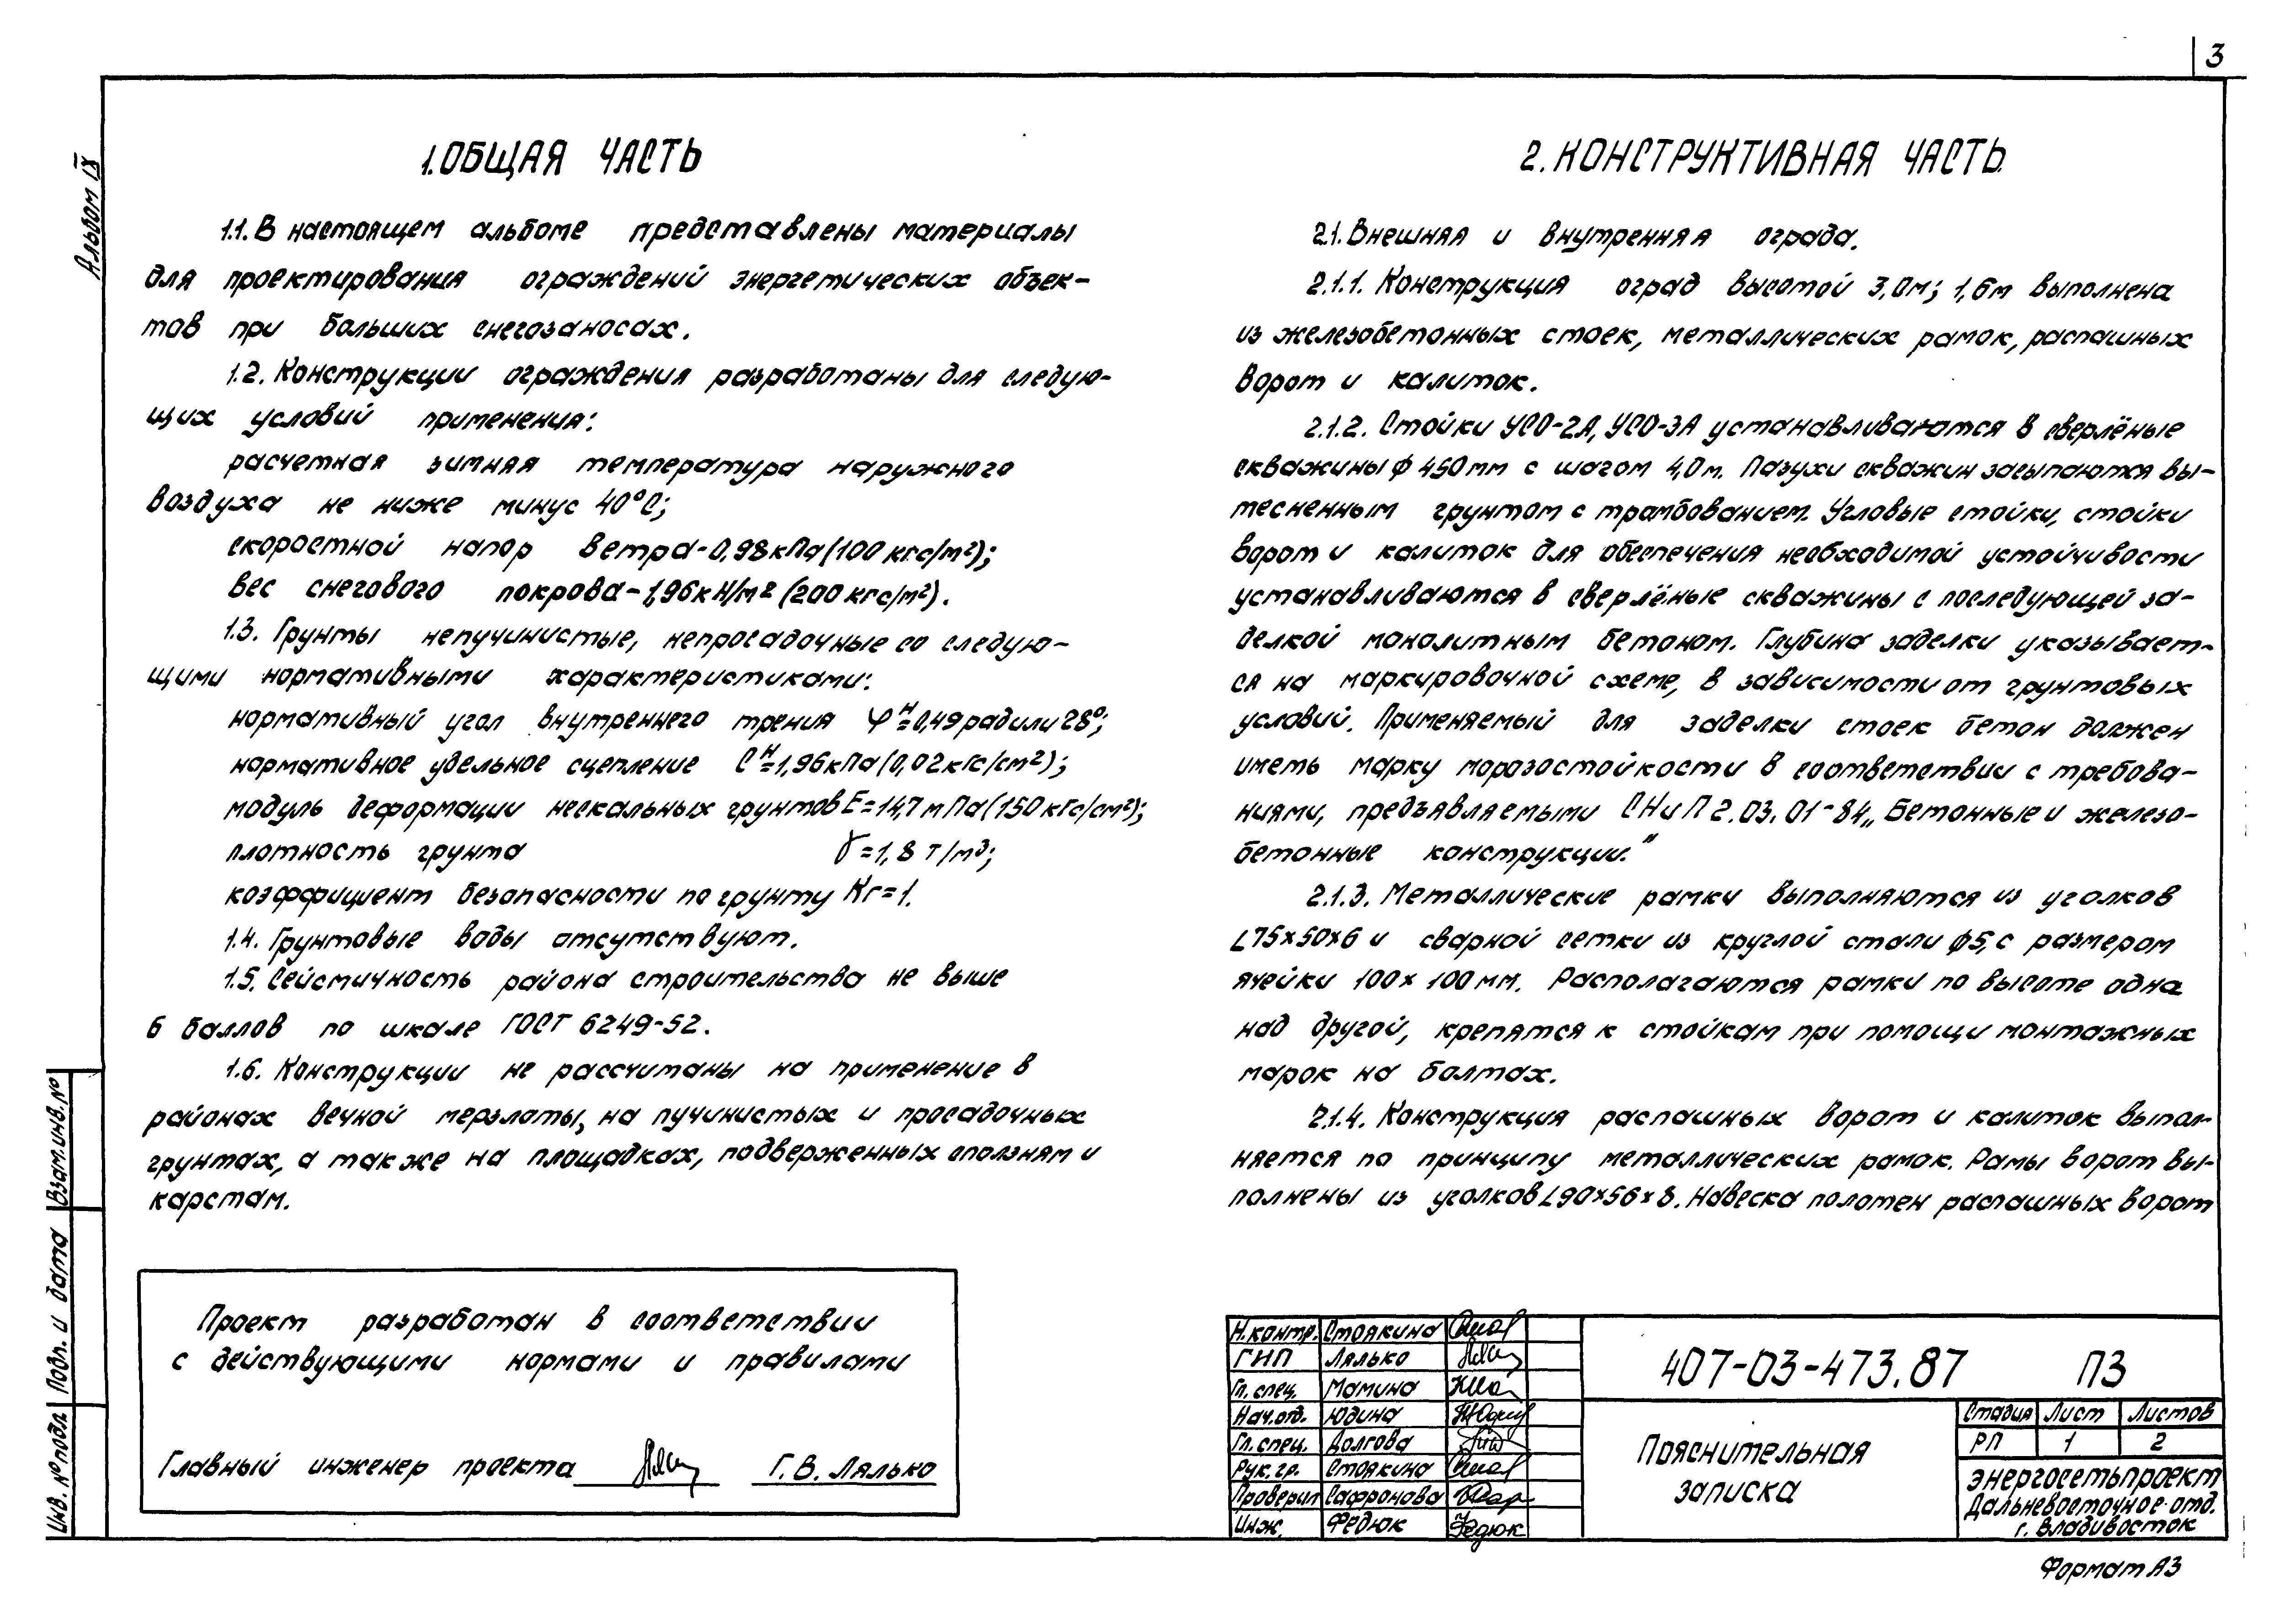 3
Альбом IX
1. ОБЩАЯ ЧАСТЬ
1.1. В настоящем альбоме представлены материалы
для проектирования ограждений энергетических объек-
тов при больших снегозаносах.
1.2. Конструкции ограждения разработаны для следую-
щих условий применения:
расчетная зимняя температура наружного
воздуха не ниже минус 40°С;
скоростной напор ветра-0,98кПа(100 кгс/м²);
вес снегового покрова-1,96кН/м² (200 кгс/м²).
1.3. Грунты непучинистые, непросадочные со следую-
щими нормативными характеристиками:
нормативный угол внутреннего трения φᴴ=0,49рад или 28°;
нормативное удельное сцепление Cᴴ=1,96кПа(0,02кгс/см²);
модуль деформации нескальных грунтов Е=14,7мПа(150кгс/см²);
плотность грунта γ=1,8 т/м³;
коэффициент безопасности по грунту Кг=1.
1.4. Грунтовые воды отсутствуют.
1.5. Сейсмичность района строительства не выше
6 баллов по шкале ГОСТ 6249-52.
1.6. Конструкции не рассчитаны на применение в
районах вечной мерзлоты, на пучинистых и просадочных
грунтах, а также на площадках, подверженных оползням и
карстам.
Проект разработан в соответствии
с действующими нормами и правилами
Главный инженер проекта Г.В. Лялько
2. КОНСТРУКТИВНАЯ ЧАСТЬ
2.1. Внешняя и внутренняя ограда.
2.1.1. Конструкция оград высотой 3,0м; 1,6м выполнена
из железобетонных стоек, металлических рамок, распашных
ворот и калиток.
2.1.2. Стойки УСО-2А, УСО-3А устанавливаются в сверлёные
скважины ф 450мм с шагом 4,0м. Пазухи скважин засыпаются вы-
тесненным грунтом с трамбованием. Угловые стойки, стойки
ворот и калиток для обеспечения необходимой устойчивости
устанавливаются в сверлёные скважины с последующей за-
делкой монолитным бетоном. Глубина заделки указывает-
ся на маркировочной схеме, в зависимости от грунтовых
условий. Применяемый для заделки стоек бетон должен
иметь марку морозостойкости в соответствии с требова-
ниями, предъявляемыми СНиП 2.03.01-84 „Бетонные и железо-
бетонные конструкции."
2.1.3. Металлические рамки выполняются из уголков
∠75×50×6 и сварной сетки из круглой стали ф5, с размером
ячейки 100×100мм. Располагаются рамки по высоте одна
над другой, крепятся к стойкам при помощи монтажных
марок на болтах.
2.1.4. Конструкция распашных ворот и калиток выпол-
няется по принципу металлических рамок. Рамы ворот вы-
полнены из уголков ∠90×56×8. Навеска полотен распашных ворот
Н.контр. Стоякина
ГИП Лялько
Гл. спец. Мамина
Нач.отд. Юдина
Гл. спец. Долгова
Рук. гр. Стоякина
Проверил Сафронова
Инж. Федюк Федюк
407-03-473.87 ПЗ
Пояснительная
записка
Стадия Лист Листов
РП 1 2
Энергосетьпроект
Дальневосточное отд.
г. Владивосток
Формат А3
Инв. № подл Подп. и дата Взам.инв.№